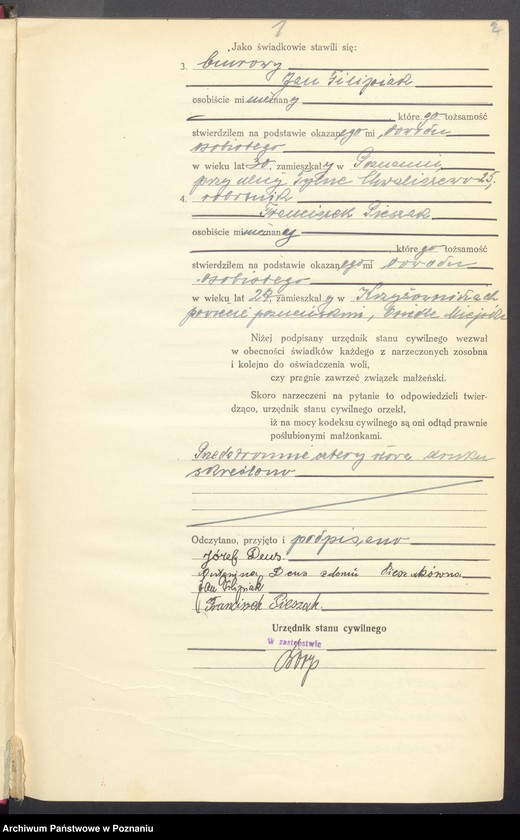 1 2
Jako świadkowie stawili się:
3. biurowy
Jan Filipiak
osobiście mi nieznany
, które go tożsamość
stwierdziłem na podstawie okazanego mi dowodu
osobistego
w wieku lat 30, zamieszkały w Poznaniu,
przy ulicy Tylne Chwaliszewo 25.
4. robotnik
Franciszek Pieszak
osobiście mi nieznany
, które go tożsamość
stwierdziłem na podstawie okazanego mi dowodu
osobistego
w wieku lat 29, zamieszkały w Krzyżownikach
powiecie poznańskim, Osiedle Miejskie
Niżej podpisany urzędnik stanu cywilnego wezwał
w obecności świadków każdego z narzeczonych zosobna
i kolejno do oświadczenia woli,
czy pragnie zawrzeć związek małżeński.
Skoro narzeczeni na pytanie to odpowiedzieli twier-
dząco, urzędnik stanu cywilnego orzekł,
iż na mocy kodeksu cywilnego są oni odtąd prawnie
poślubionymi małżonkami.
Przedstronnie cztery słowa druku
skreślono
Odczytano, przyjęto i podpisano
Józef Deus.
Deus z domu Pieszakówna
Jan Filipiak
Franciszek Pieszak
Urzędnik stanu cywilnego
W zastępstwie
Archiwum Państwowe w Poznaniu